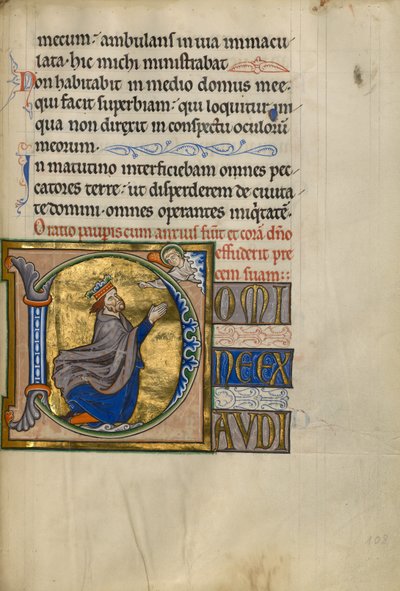 mecum: ambulans in uia immacu
lata. hic michi ministrabat
Non habitabit in medio domus mee
qui facit superbiam: qui loquitur in
qua non direxit in conspectu oculorū
meorum.
In matutino interficiebam omnes pec
catores terre: ut disperderem de ciuita
te domini. omnes operantes iniq̇tatē.
Oratio paup̲is cum anxius fūit et corā dn̄o
effuderit pre
cem suam::
DOMI
NE EX
AVDI
108